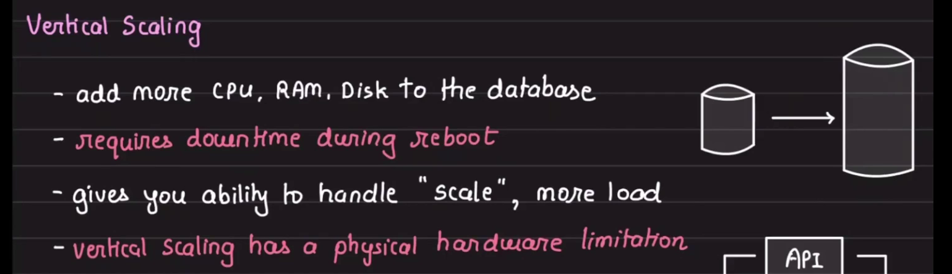 Vertical Scaling
- add more CPU, RAM, Disk to the database
- requires downtime during reboot
- gives you ability to handle "scale", more load
- vertical scaling has a physical hardware limitation
API